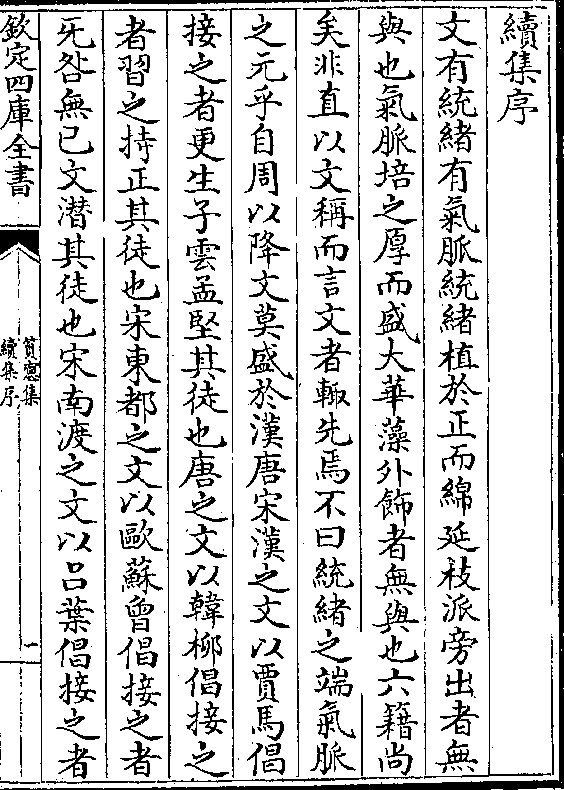 續集序
文有統緒有氣脈統緒植於正而綿延枝派旁出者無
與也氣脈培之厚而盛大華藻外飾者無與也六籍尚
矣非直以文稱而言文者輙先焉不曰統緒之端氣脈
之元乎自周以降文莫盛於漢唐宋漢之文以賈馬倡
接之者更生子雲孟堅其徒也唐之文以韓柳倡接之
者習之持正其徒也宋東都之文以歐蘇曾倡接之者
旡咎無已文潜其徒也宋南渡之文以吕葉倡接之者
欽定四庫全書
續集序
一